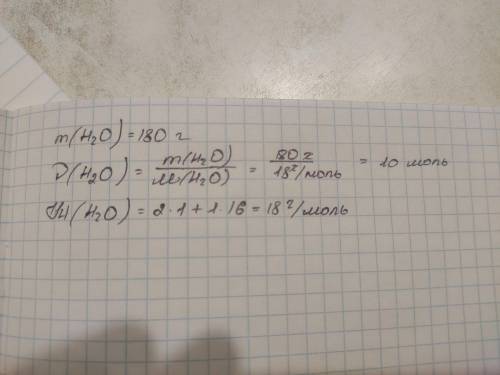 m(H₂O) = 180 г
ν(H₂O) = m(H₂O)/M(H₂O) = 180 г/18 г/моль = 10 моль
M(H₂O) = 2·1 + 1·16 = 18 г/моль